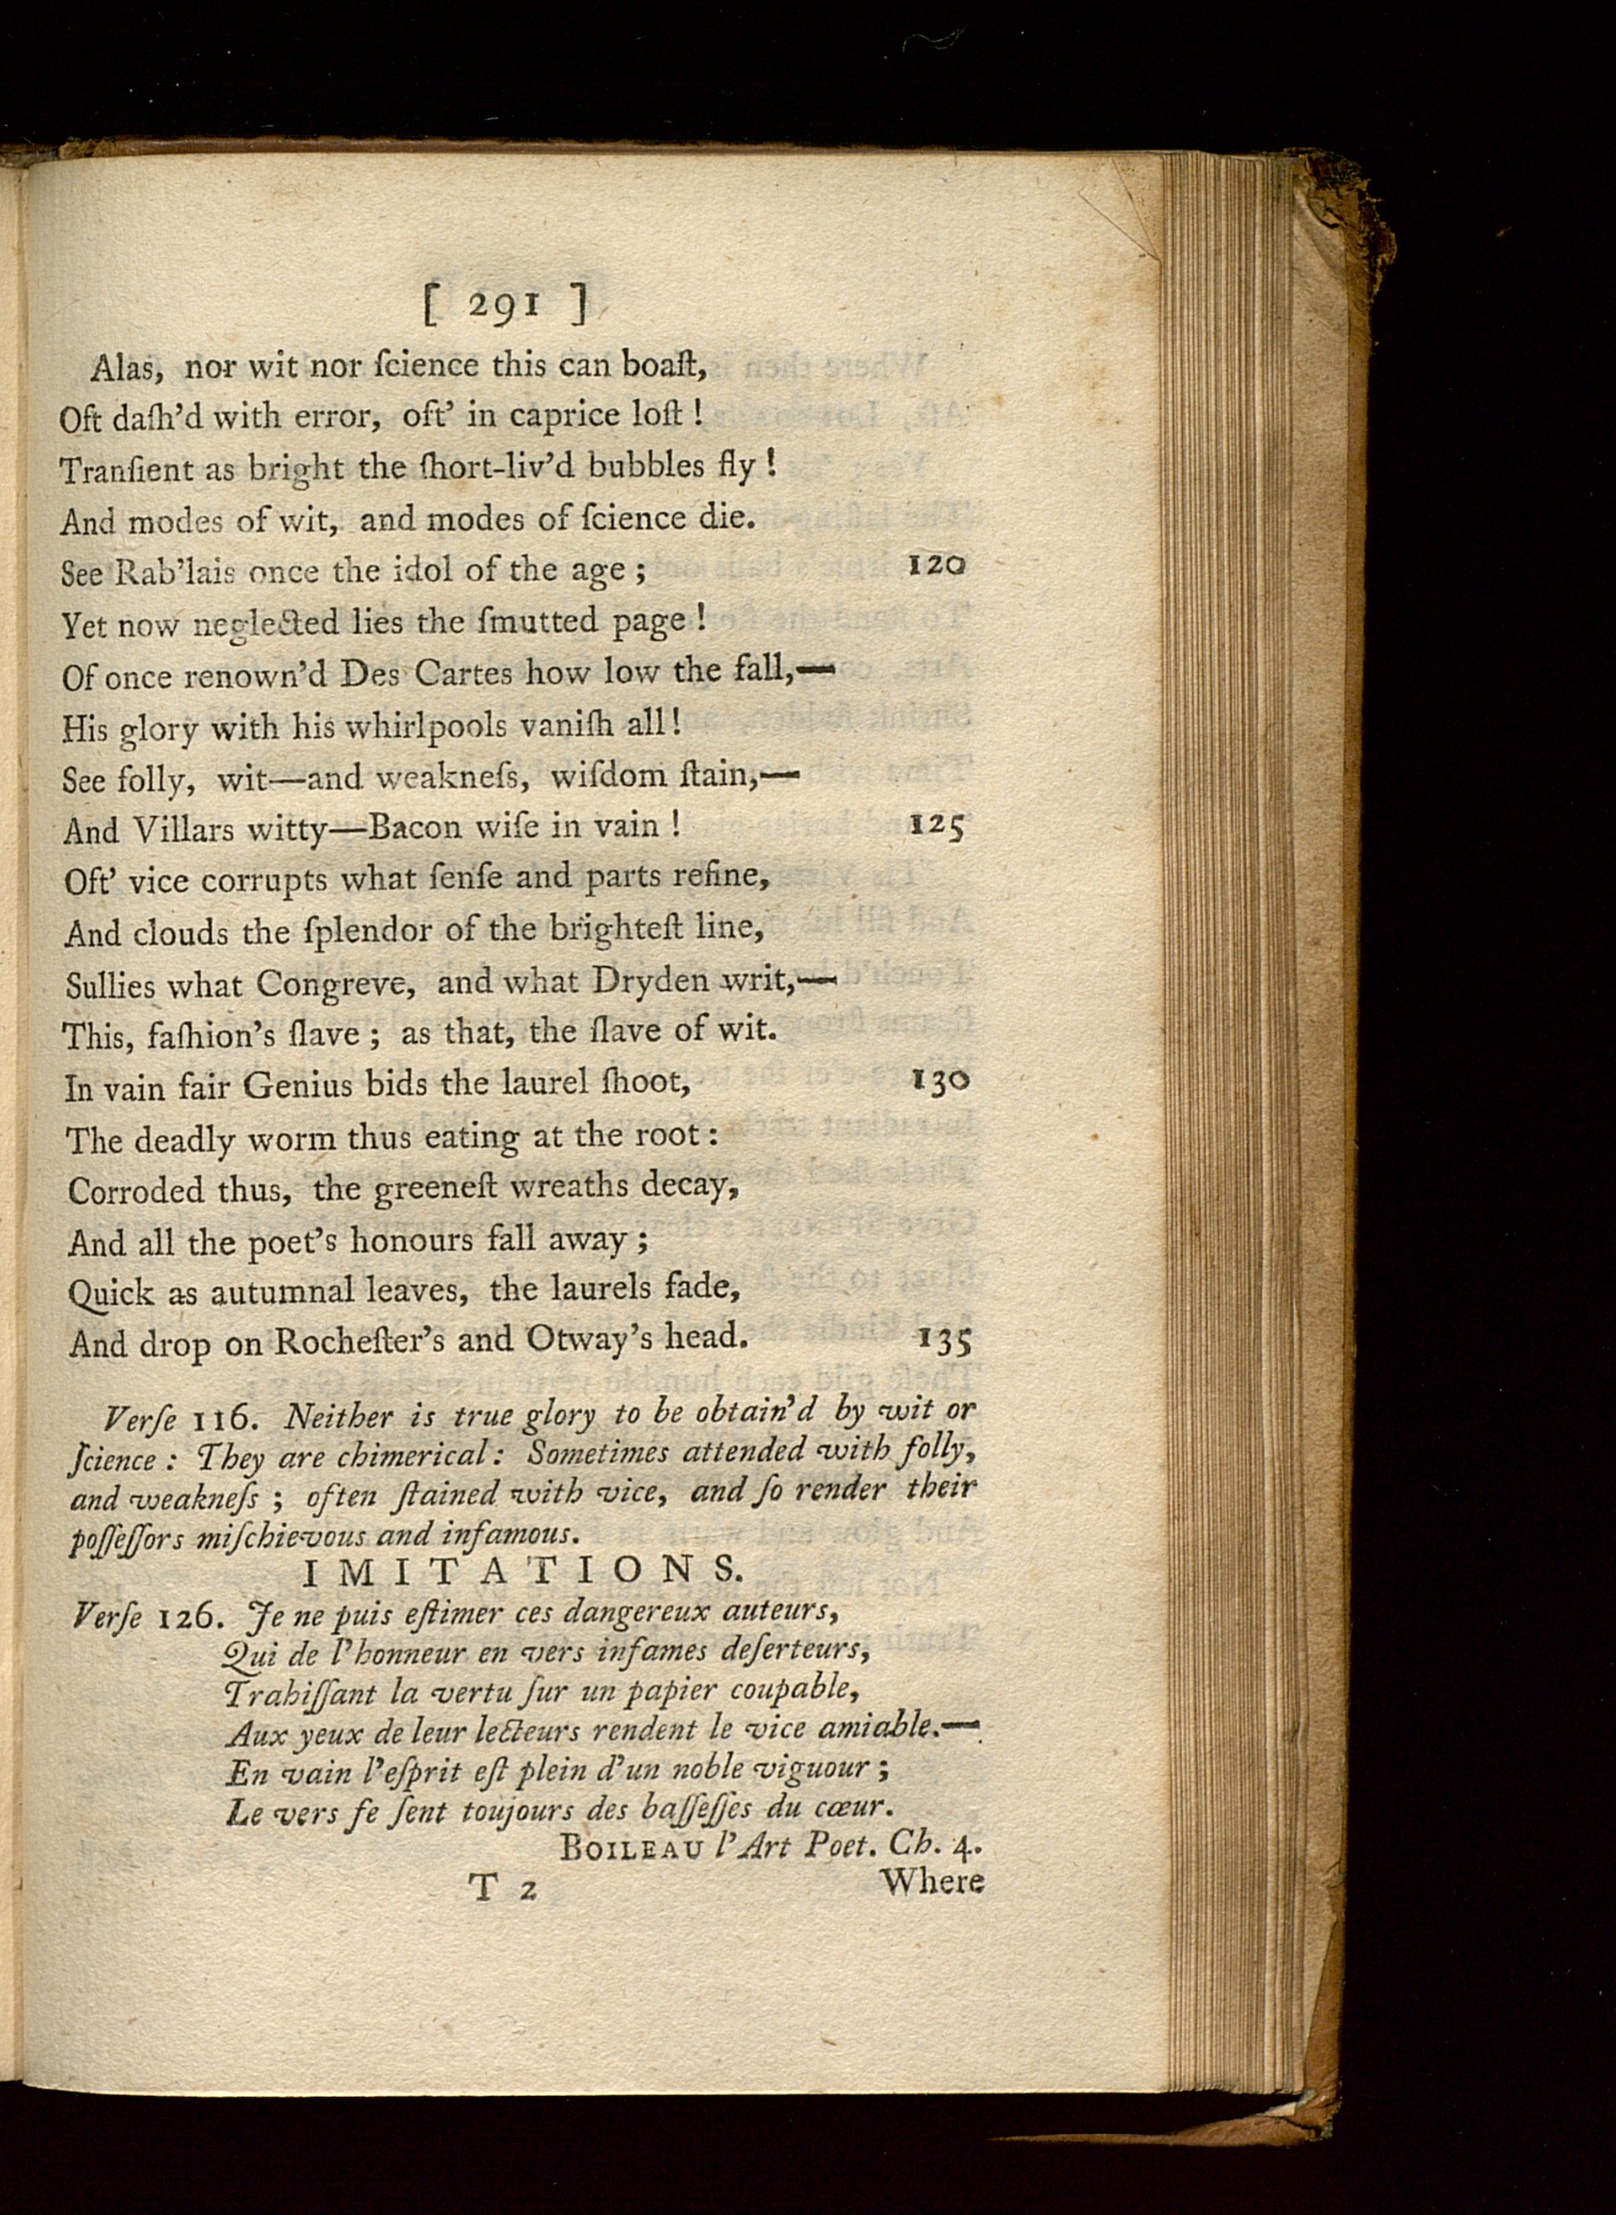 [ 291 ]
Alas, nor wit nor ſcience this can boaſt,
Oft daſh'd with error, oft' in caprice loſt !
Tranſient as bright the ſhort-liv'd bubbles fly !
And modes of wit, and modes of ſcience die.
See Rab'lais once the idol of the age ; 120
Yet now neglected lies the ſmutted page !
Of once renown'd Des Cartes how low the fall,—
His glory with his whirlpools vaniſh all !
See folly, wit—and weakneſs, wiſdom ſtain,—
And Villars witty—Bacon wiſe in vain ! 125
Oft' vice corrupts what ſenſe and parts refine,
And clouds the ſplendor of the brighteſt line,
Sullies what Congreve, and what Dryden writ,—
This, faſhion's ſlave ; as that, the ſlave of wit.
In vain fair Genius bids the laurel ſhoot, 130
The deadly worm thus eating at the root :
Corroded thus, the greeneſt wreaths decay,
And all the poet's honours fall away ;
Quick as autumnal leaves, the laurels fade,
And drop on Rocheſter's and Otway's head. 135
Verſe 116. Neither is true glory to be obtain'd by wit or
ſcience : They are chimerical : Sometimes attended with folly,
and weakneſs ; often ſtained with vice, and ſo render their
poſſeſſors miſchievous and infamous.
IMITATIONS.
Verſe 126. Je ne puis eſtimer ces dangereux auteurs,
Qui de l'honneur en vers infames deſerteurs,
Trahiſſant la vertu ſur un papier coupable,
Aux yeux de leur lecteurs rendent le vice amiable.—
En vain l'eſprit eſt plein d'un noble viguour ;
Le vers ſe ſent toujours des baſſeſſes du cœur.
BOILEAU l'Art Poet. Ch. 4.
T 2 Where